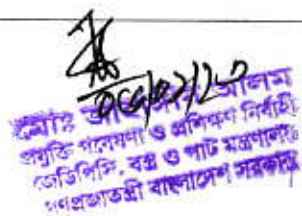 ০৫/০২/২৩
মোঃ আলম
প্রযুক্তি গবেষণা ও প্রশিক্ষণ নির্বাহী
জেডিপিসি, বস্ত্র ও পাট মন্ত্রণালয়
গণপ্রজাতন্ত্রী বাংলাদেশ সরকার